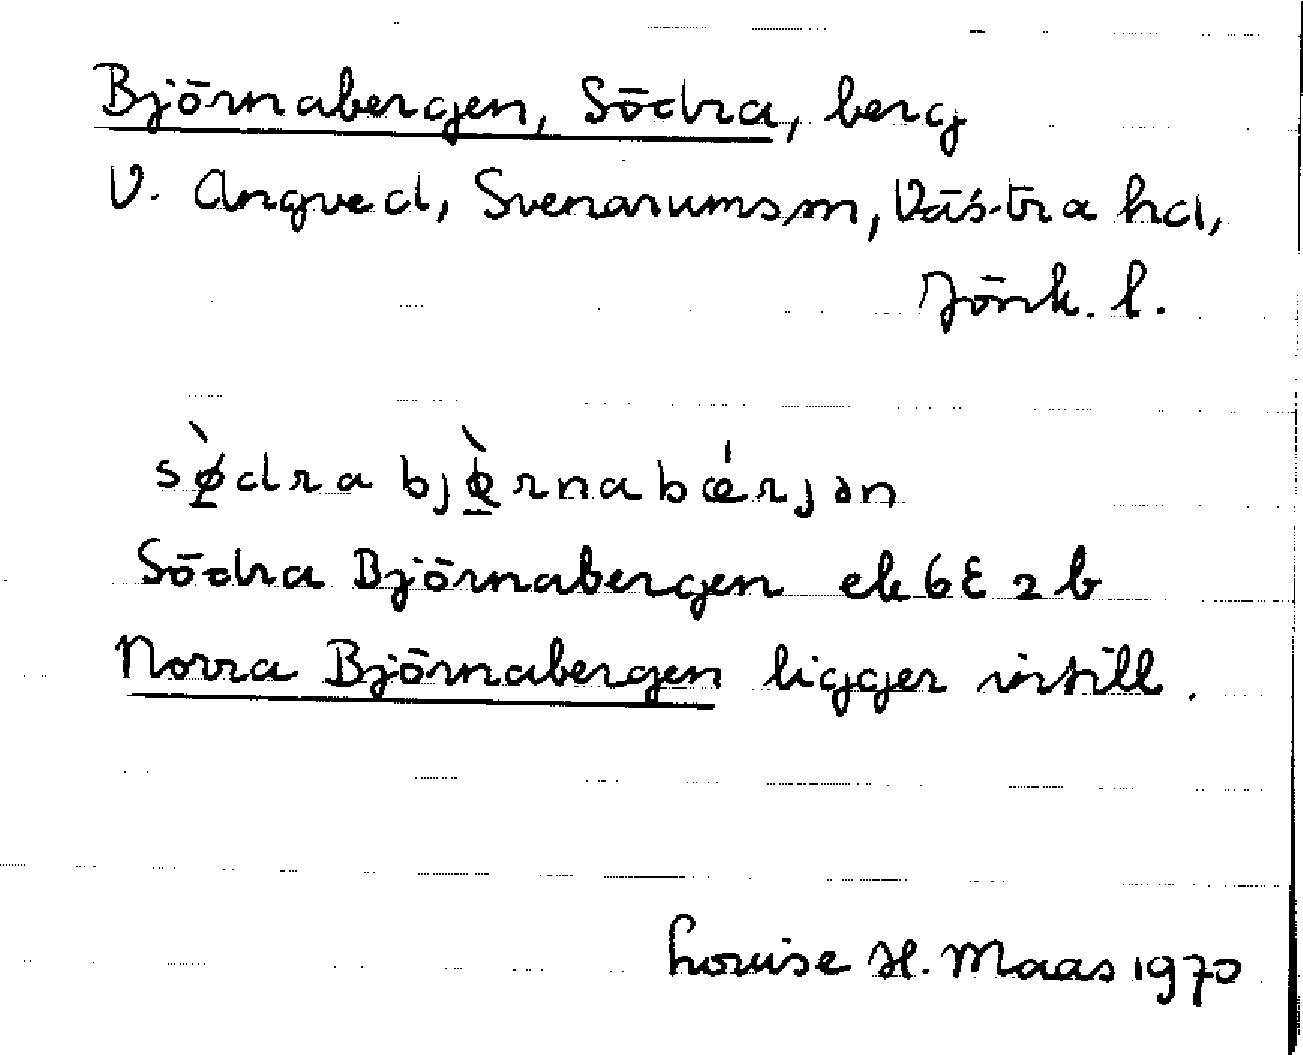 Björnabergen, Södra, berg
V. Angved, Svenarumssn, Västra hd,
Jönk. l.
sø̀dra bjø̀rnabǽrjən
Södra Björnabergen ek 6E 2b
Norra Björnabergen ligger intill.
Louise H. Maas 1970